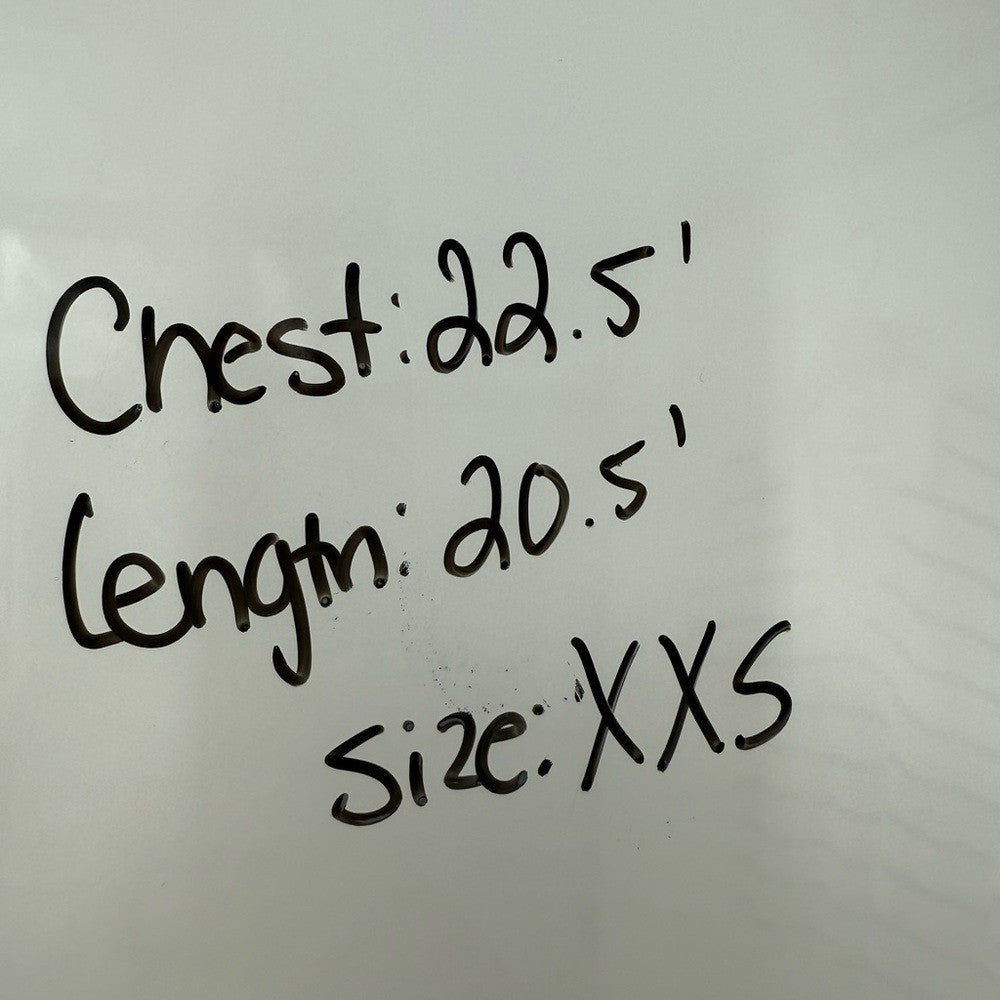 Chest: 22.5'
Length: 20.5'
Size: XXS